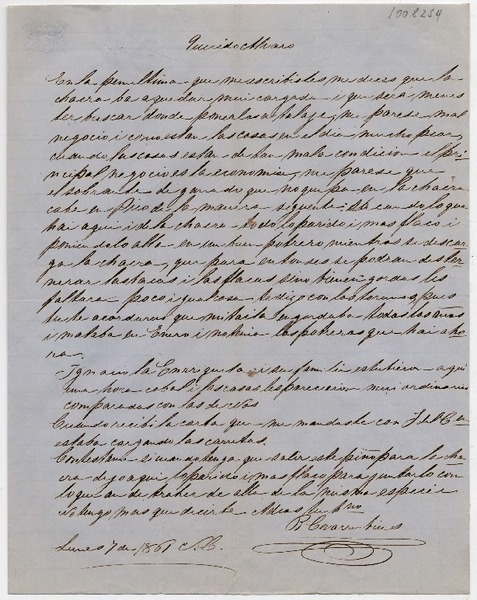 1008254
Querido Alvaro
En la penultima que me escribistes me dices que la
chacra ba a quedar mui cargada i que será menes
ter buscar donde ponerlas a talaje, me parese mal
negocio i como estan las cosas en el dia mucho peor,
cuando las cosas estan de tan mala condicion el prin
cipal negocio es la economia, me parese que
el sobrante de ganado que no quepa en la chacra
cabe en Pico de la manera siguente
hai aqui i de la chacra todo lo parido i mas flaco i
poniendolo alla en un buen potrero mientras se descar
ga la chacra, que para entonses se podran dester
nerar las bacas i las flacas si no tienen gordas les
faltara poco i igual cosa te digo con las
tu te acordaras que mi taita engordaba todos los años
i mataba en Enero i no tenia los potreros que hai aho
ra.
Ignacio la Emerguista i su familia estubieron aqui
una hora cabal i las casas le parecieron mui ordinarias
comparadas con las de
Cuando recibi la carta que me mandaste con J. del C.
estaba cargando las carretas.
Contestame si cuando tenga que salir este piño para la cha
cra dejo aqui lo parido i mas flaco para juntarlo con
lo que an de traher de alla de la misma especie
No tengo mas que decirte Adios tu Hno
R. Covarrubias
Lunes 7 de, 1861